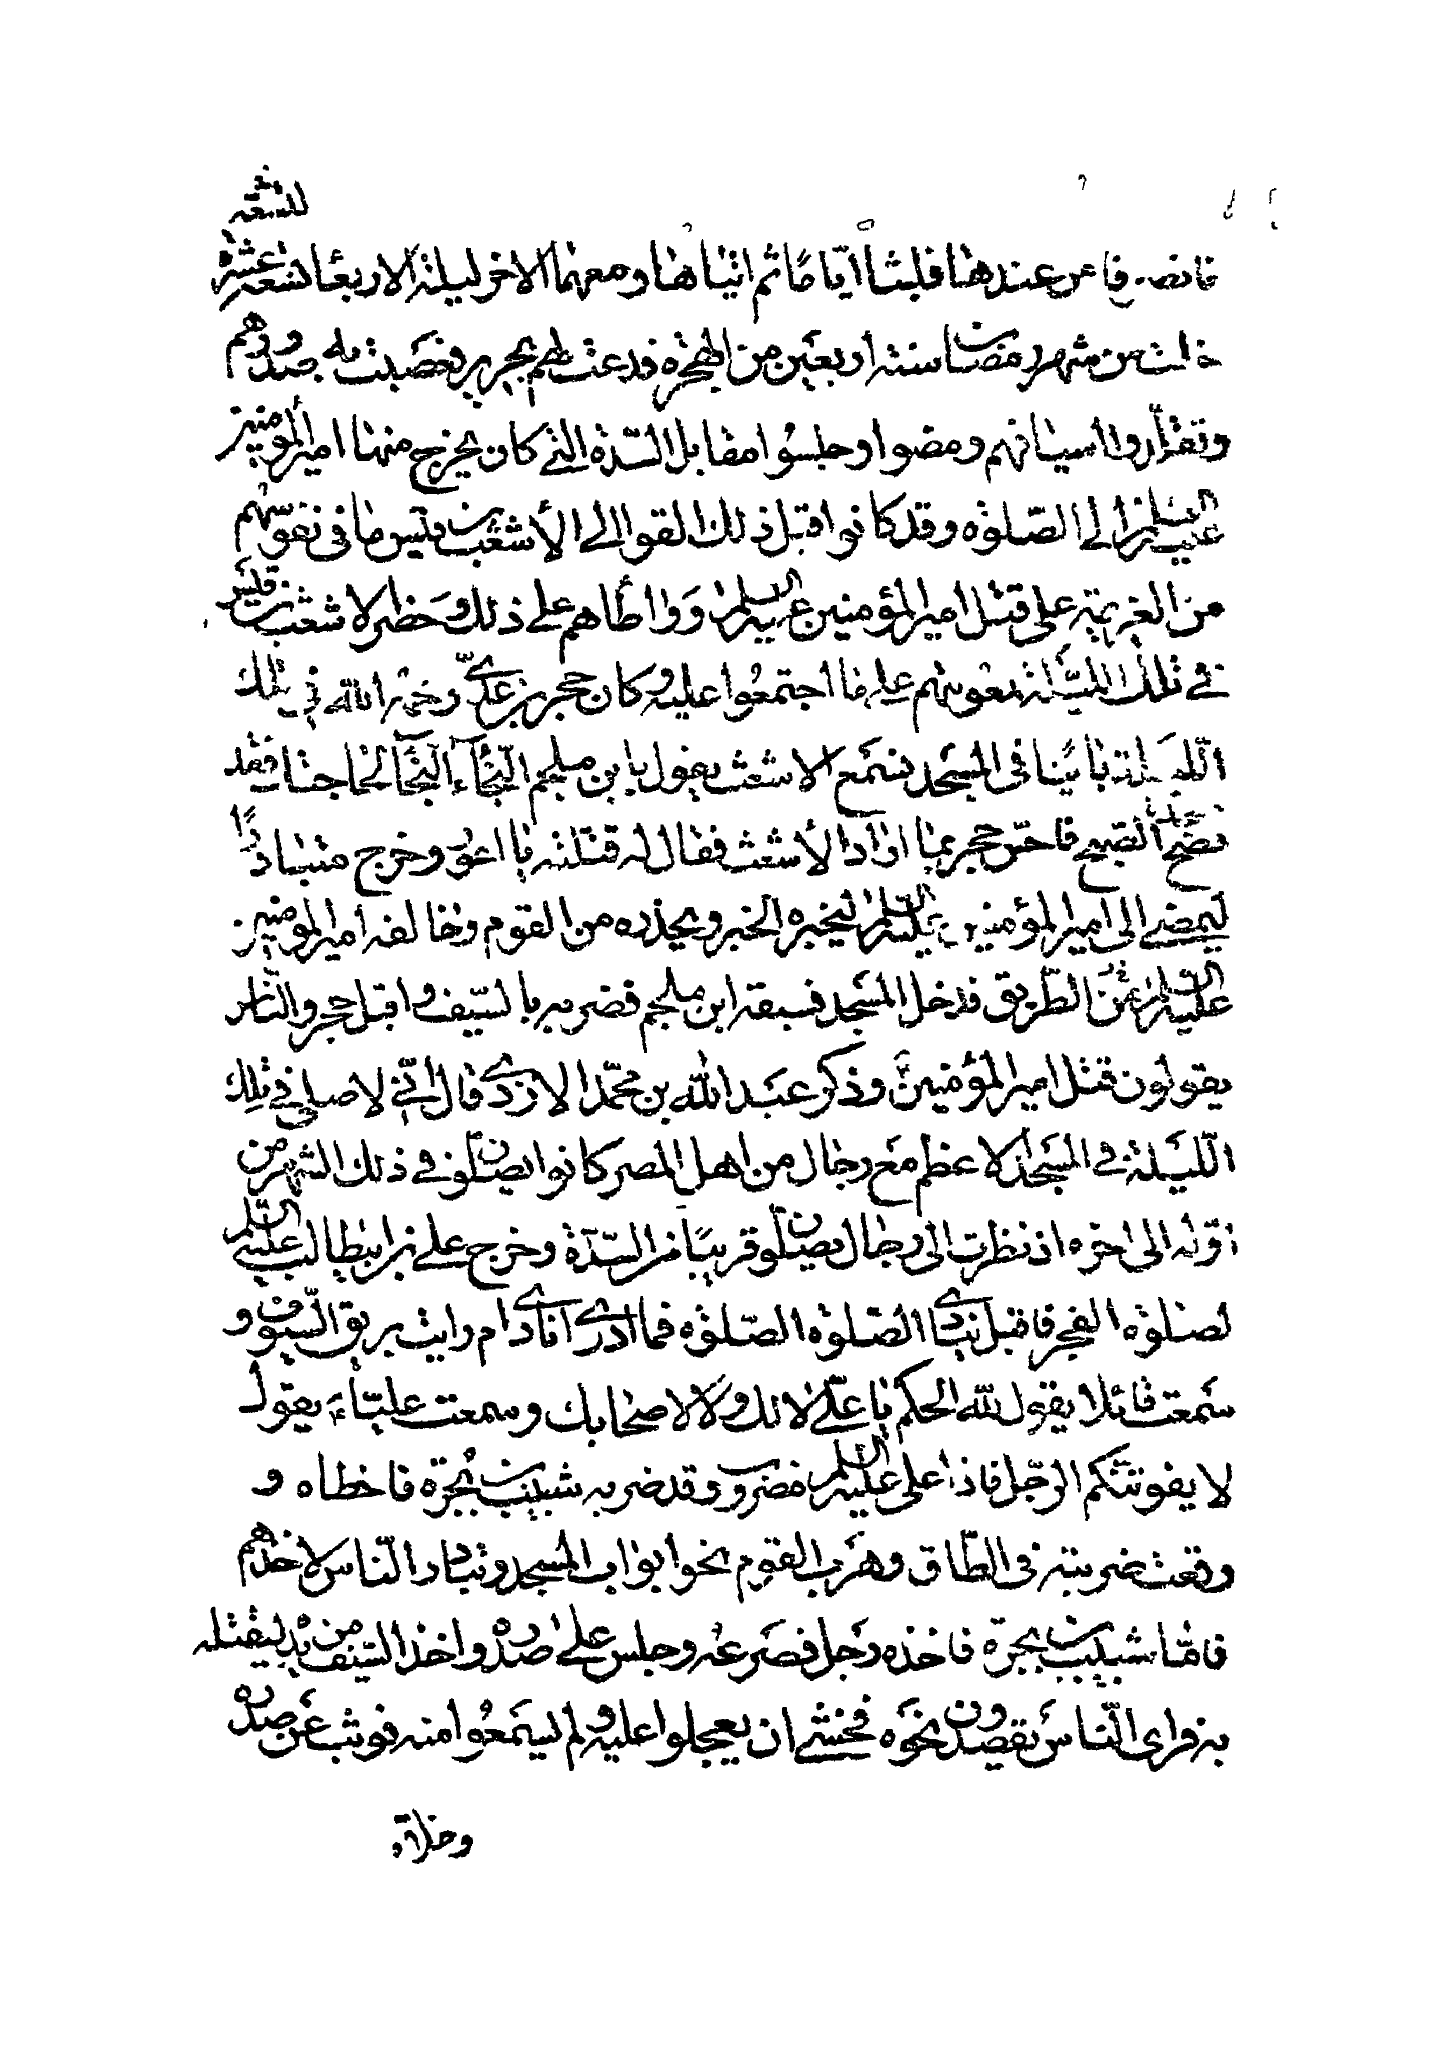 للتسعة
فانصرفا من عندها فلبثا ايّامًا ثم اتياها ومعهما الاخر ليلة الاربعا لتسعة عشرة
خلت من شهر رمضان سنة اربعين من الهجرة فدعت لهم بحرير فعصبت به صدورهم
وتقلّدوا اسيافهم ومضوا وجلسوا مقابل السّدّة التي كان يخرج منها امير المؤمنين
عليه السلم الى الصّلوة وقد كانوا قبل ذلك القوا الى الأشعث بن قيس ما فى نفوسهم
من العزيمة على قتل امير المؤمنين عليه السلم وواطأهم على ذلك وحضر الاشعث بن قيس
في تلك اللّيلة لمعونتهم على ما اجتمعوا عليه وكان حجر بن عديّ رحمة الله في تلك
اللّيلة بائتًا فى المسجد فسمع الاشعث يقول يا بن ملجم النّجآء النّجآء لحاجتك فقد
فضحك الصّبح فاحسّ حجر بما اراد الأشعث فقال له قتلته يا اعور وخرج متبادرًا
ليمضي الى امير المؤمنين عليه السلم ليخبره الخبر ويحذره من القوم وخالفه امير المؤمنين
عليه السلم من الطّريق فدخل المسجد فسبقه ابن ملجم فضربه بالسّيف واقبل حجر والنّاس
يقولون قتل امير المؤمنين وذكر عبد الله بن محمّد الازدي قال انّي لاصلى في تلك
اللّيلة في المسجد الاعظم مع رجال من اهل المصر كانوا يصلّون في ذلك الشهر من
اوّله الى اخره اذ نظرت الى رجال يصلّون قريبًا من السّدّة وخرج علي بن ابيطالب عليه السلم
لصلوة الفجر فاقبل ينادي الصّلوة الصّلوة فما ادري انادى ام رايت بريق السّيوف و
سمعت قائلا يقول لله الحكم يا عليّ لا لك ولا لاصحابك وسمعت عليّاء يقول
لا يفوتنّكم الرّجل فاذا على عليه السلم مضروب وقد ضربه شبيب بن بجرة فاخطاه و
وقعت ضربته فى الطّاق وهرب القوم نحو ابواب المسجد وتبادر النّاس لاخذهم
فامّا شبيب بن بجرة فاخذه رجل فصرعه وجلس على صدره واخذ السّيف من يده ليقتله
به فراى النّاس يقصدون نحوه فخشي ان يعجلوا عليه ولم يسمعوا منه فوثب عن صدره
وخلاه